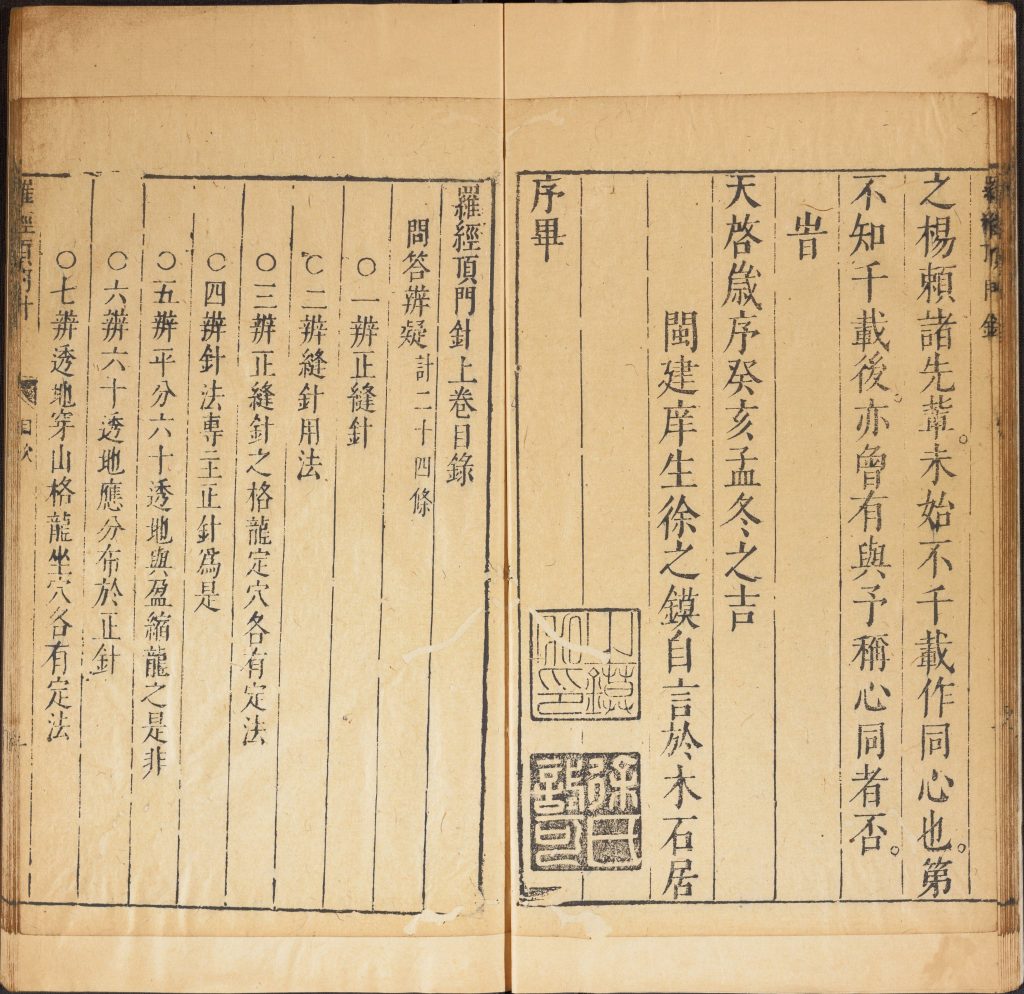 之楊頼諸先輩未始不千載作同心也。第
不知千載後亦曾有與予稱心同者否。
旹
天啓歲序癸亥孟冬之吉
閩建庠生徐之鏌自言於木石居
序畢
羅經頂門針上卷目錄
問答辨疑 計二十四條
○一辨正縫針
○二辨縫針用法
○三辨正縫針之格龍定穴各有定法
○四辨針法專主正針爲是
○五辨平分六十透地與盈縮龍之是非
○六辨六十透地應分布於正針
○七辨透地穿山格龍坐穴各有定法
羅經頂門針 目次